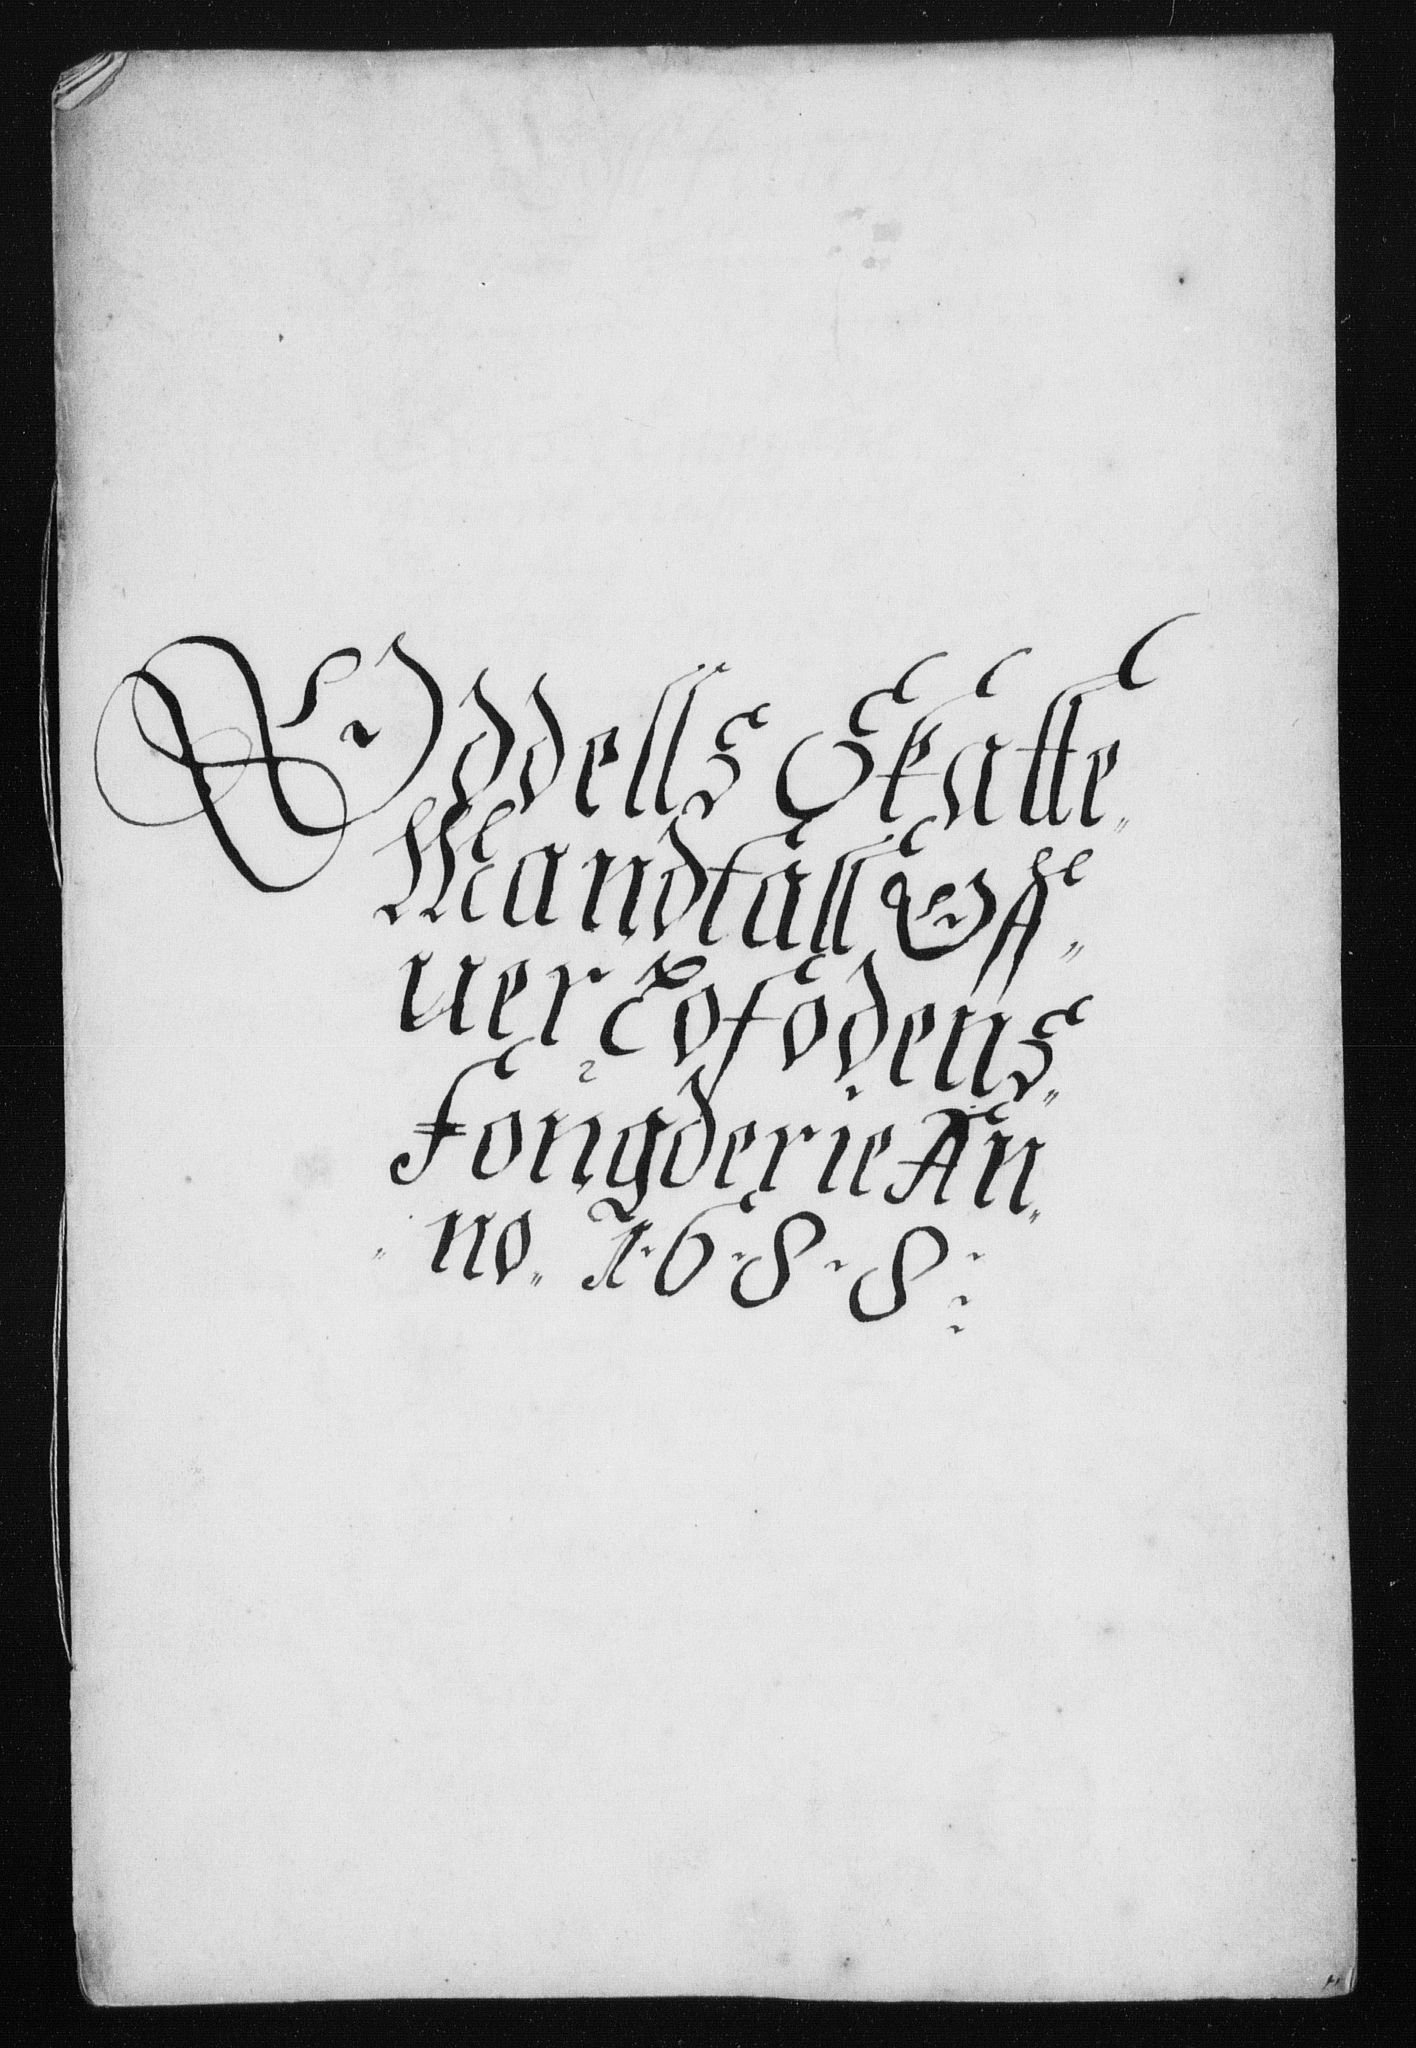 Oddells Skatte„
Mandtall Off„
uer Lofodens„
Fougderie An„
„ no„ 1·6·8·8: